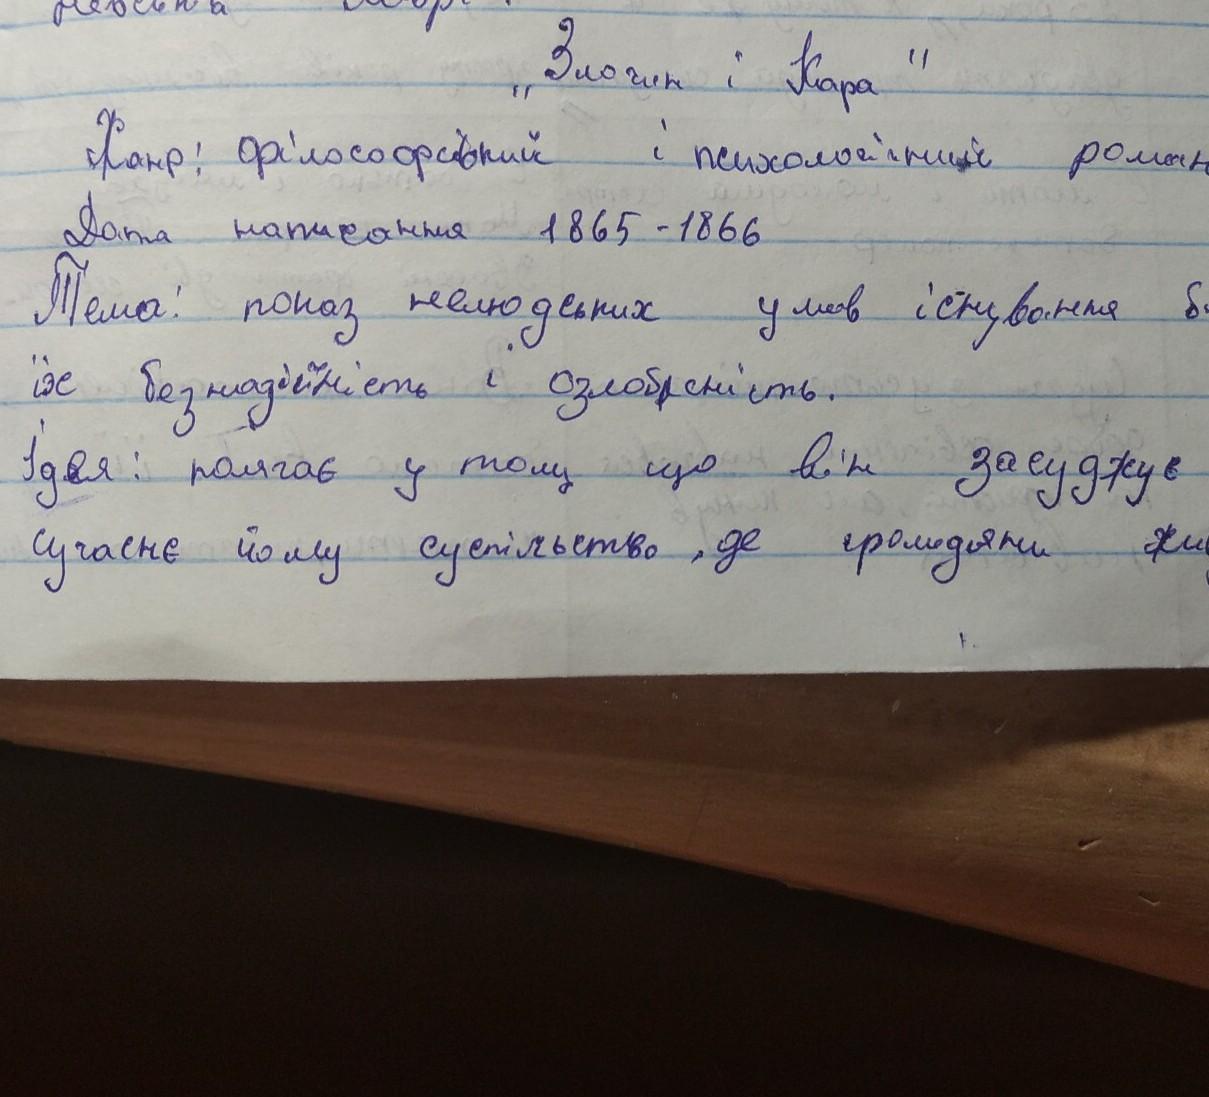 „Злочин і Кара"
Жанр: філософський і психологічний роман
Дата написання 1865-1866
Тема: показ нелюдських умов існування
їх безнадійність і озлобленість.
Ідея: полягає у тому що він засуджує
сучаснє йому суспільство, де громадяни